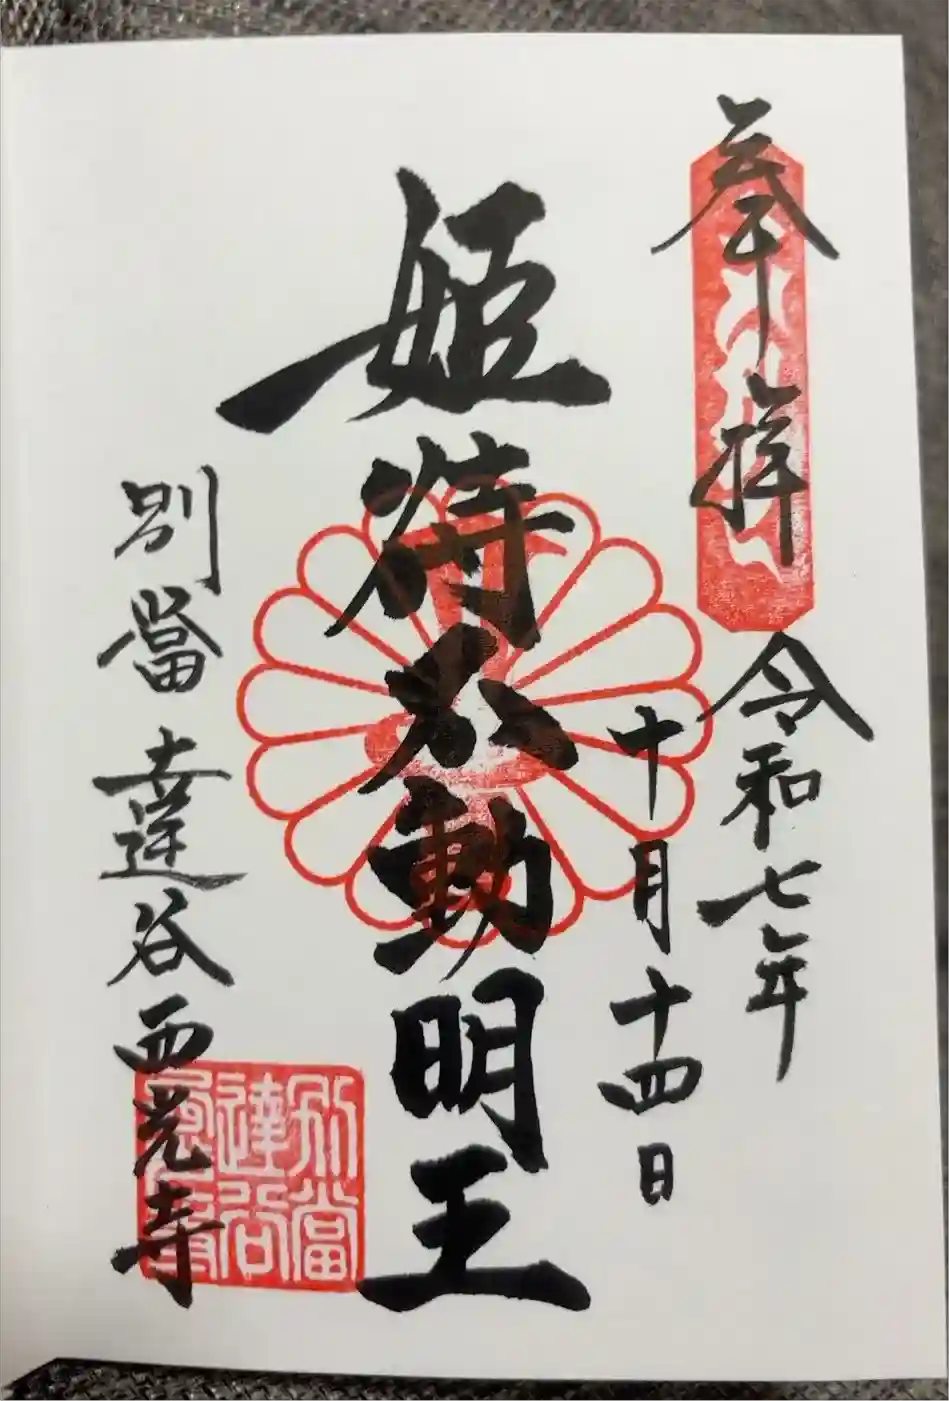 奉拝
令和七年
十月十四日
姫待不動明王
別當 達谷西光寺
別當
達谷